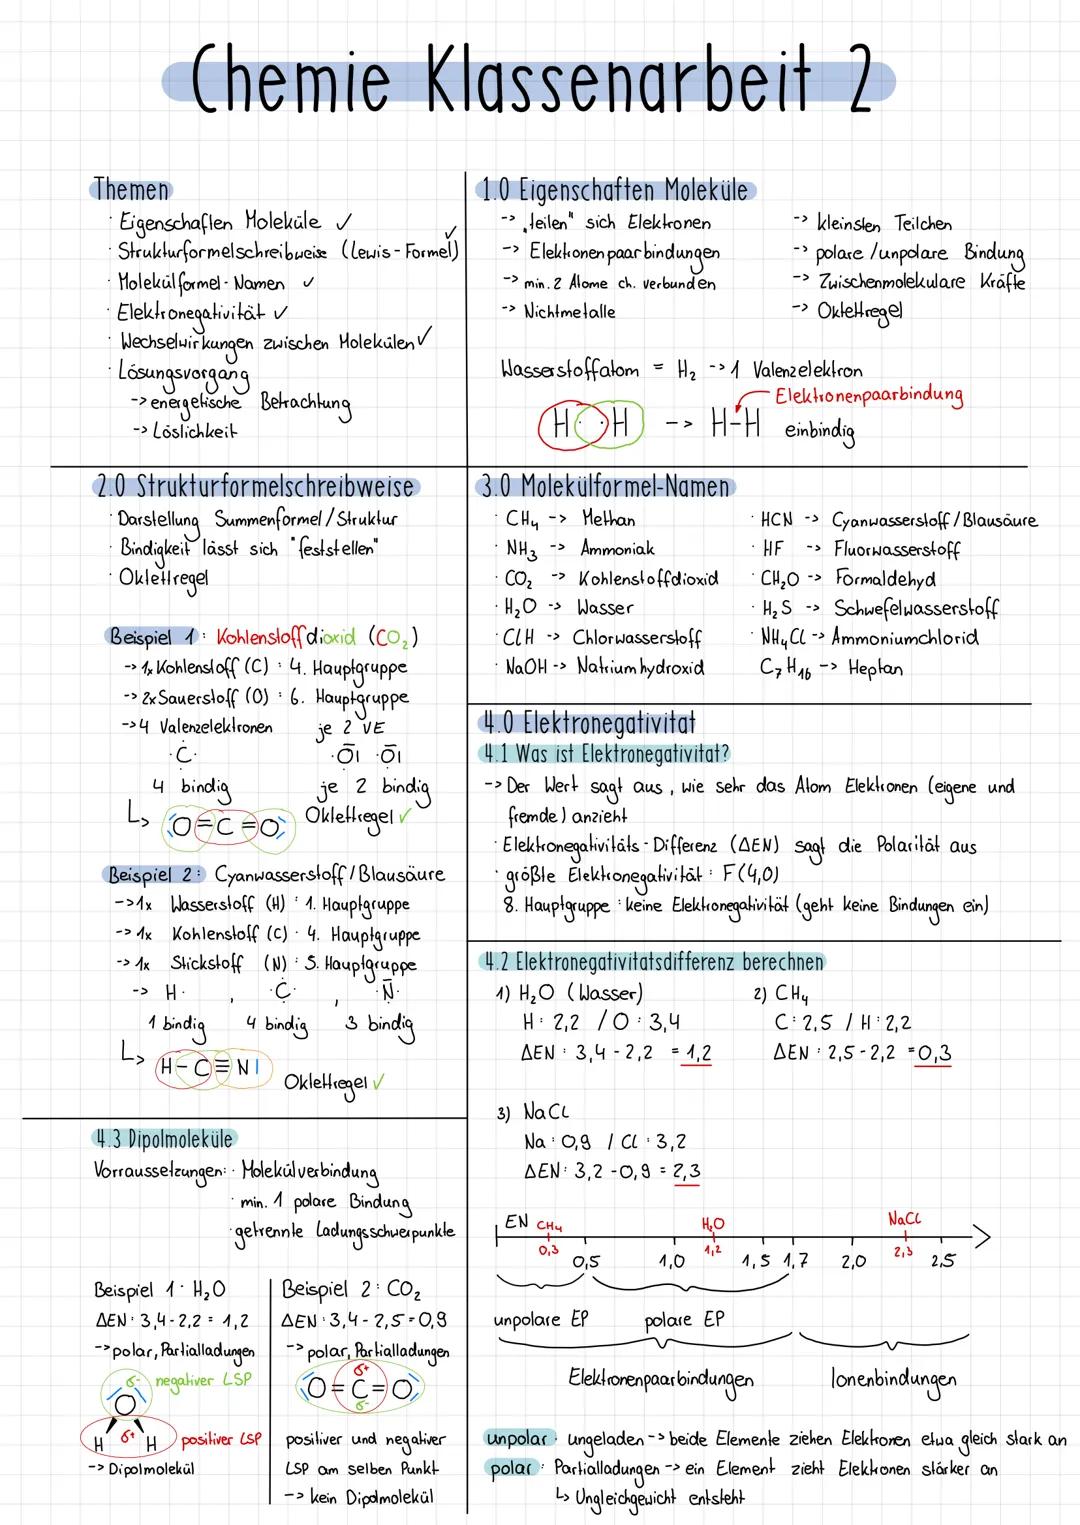 Chemie Klassenarbeit 2
Themen
· Eigenschaften Moleküle ✓
· Strukturformelschreibweise (Lewis-Formel) ✓
· Molekülformel-Namen ✓
· Elektronegativität ✓
· Wechselwirkungen zwischen Molekülen ✓
· Lösungsvorgang
-> energetische Betrachtung
-> Löslichkeit
1.0 Eigenschaften Moleküle
-> „teilen" sich Elektronen
-> Elektronenpaarbindungen
-> min. 2 Atome ch. verbunden
-> Nichtmetalle
-> kleinsten Teilchen
-> polare/unpolare Bindung
-> Zwischenmolekulare Kräfte
-> Oktettregel
Wasserstoffatom = H₂ -> 1 Valenzelektron
H · · H -> H-H
Elektronenpaarbindung
einbindig
2.0 Strukturformelschreibweise
· Darstellung Summenformel/Struktur
· Bindigkeit lässt sich "feststellen"
· Oktettregel
Beispiel 1: Kohlenstoffdioxid (CO₂)
-> 1x Kohlenstoff (C) : 4. Hauptgruppe
-> 2x Sauerstoff (O) : 6. Hauptgruppe
-> 4 Valenzelektronen je 2 VE
·C· ·O| ·O|
4 bindig je 2 bindig
O=C=O Oktettregel ✓
Beispiel 2: Cyanwasserstoff/Blausäure
-> 1x Wasserstoff (H) : 1. Hauptgruppe
-> 1x Kohlenstoff (C) : 4. Hauptgruppe
-> 1x Stickstoff (N) : 5. Hauptgruppe
-> H· , ·C· , ·N·
1 bindig 4 bindig 3 bindig
H-C≡N| Oktettregel ✓
3.0 Molekülformel-Namen
· CH₄ -> Methan
· NH₃ -> Ammoniak
· CO₂ -> Kohlenstoffdioxid
· H₂O -> Wasser
· ClH -> Chlorwasserstoff
· NaOH -> Natriumhydroxid
· HCN -> Cyanwasserstoff/Blausäure
· HF -> Fluorwasserstoff
· CH₂O -> Formaldehyd
· H₂S -> Schwefelwasserstoff
· NH₄Cl -> Ammoniumchlorid
C₇H₁₆ -> Heptan
4.0 Elektronegativitat
4.1 Was ist Elektronegativitat?
-> Der Wert sagt aus, wie sehr das Atom Elektronen (eigene und
fremde) anzieht
· Elektronegativitäts-Differenz (ΔEN) sagt die Polarität aus
· größte Elektronegativität : F (4,0)
8. Hauptgruppe : keine Elektronegativität (geht keine Bindungen ein)
4.2 Elektronegativitatsdifferenz berechnen
1) H₂O (Wasser)
H: 2,2 / O: 3,4
ΔEN: 3,4 - 2,2 = 1,2
2) CH₄
C: 2,5 / H: 2,2
ΔEN: 2,5 - 2,2 = 0,3
3) NaCl
Na: 0,9 / Cl: 3,2
ΔEN: 3,2 - 0,9 = 2,3
EN CH₄ H₂O NaCl
0,3 0,5 1,0 1,2 1,5 1,7 2,0 2,3 2,5
unpolare EP polare EP
Elektronenpaarbindungen Ionenbindungen
unpolar: ungeladen -> beide Elemente ziehen Elektronen etwa gleich stark an
polar: Partialladungen -> ein Element zieht Elektronen stärker an
↳ Ungleichgewicht entsteht
4.3 Dipolmoleküle
Vorraussetzungen: · Molekülverbindung
· min. 1 polare Bindung
· getrennte Ladungsschwerpunkte
Beispiel 1: H₂O
ΔEN: 3,4-2,2 = 1,2
-> polar, Partialladungen
δ- negativer LSP
O
H δ+ H positiver LSP
-> Dipolmolekül
Beispiel 2: CO₂
ΔEN: 3,4-2,5=0,9
-> polar, Partialladungen
δ+
O=C=O
δ-
positiver und negativer
LSP am selben Punkt
-> kein Dipolmolekül